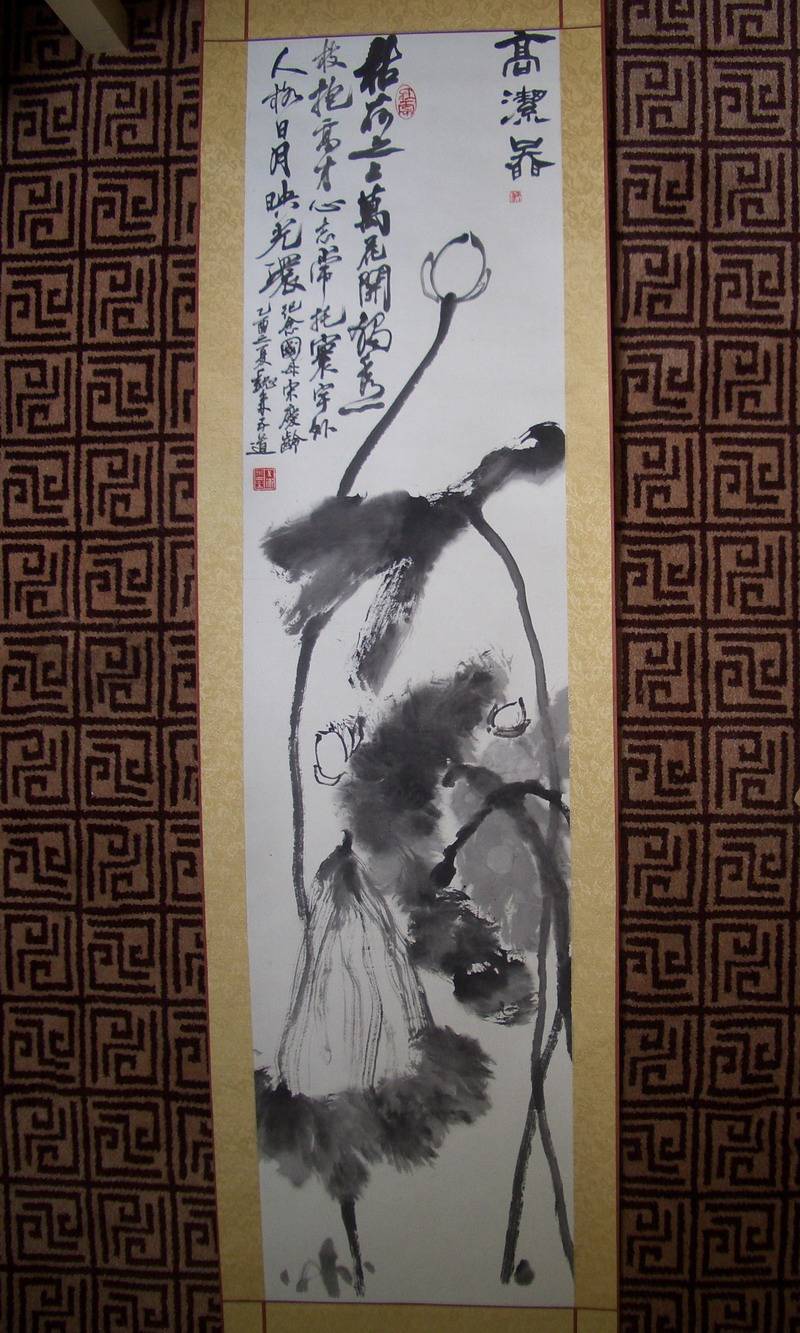 高潔品
枯荷上上萬花開獨秀一
枝抱高才心志常托寰宇外
人格日月映光環紀念國母宋慶齡
乙酉之夏魏